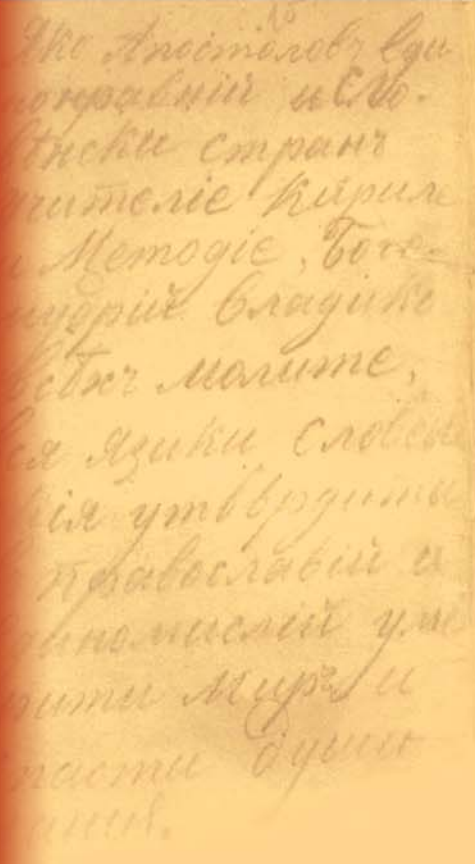 Яко Апостоловъ еди
нонравній и Сло-
вѣнски странъ
учителіе Кирилe
и Методіе, Бого-
мудрій Владике
всѣхъ молите,
вся язики словен
кія утвврдити
в православій и
единомислій уме
рити мирѣ и
спасти души
наши.